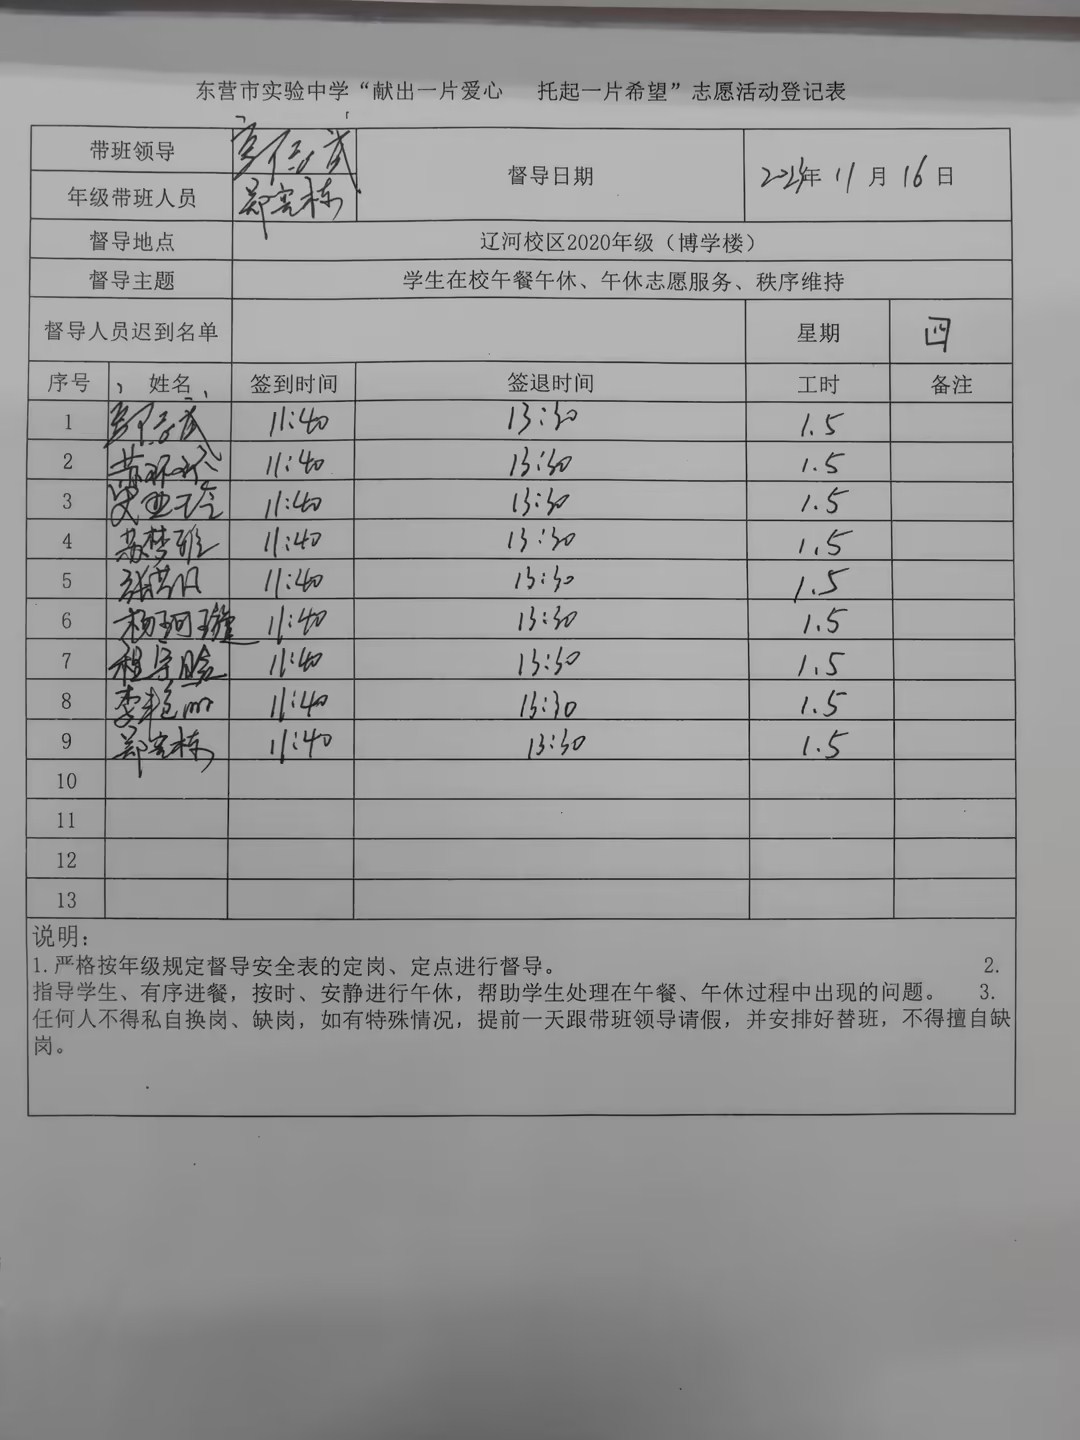 东营市实验中学“献出一片爱心 托起一片希望”志愿活动登记表
带班领导
年级带班人员 郑宪栋
督导日期 2023年 11月 16日
督导地点 辽河校区2020年级（博学楼）
督导主题 学生在校午餐午休、午休志愿服务、秩序维持
督导人员迟到名单 星期 四
序号 姓名 签到时间 签退时间 工时 备注
1 11:40 13:30 1.5
2 11:40 13:30 1.5
3 11:40 13:30 1.5
4 苏梦雅 11:40 13:30 1.5
5 11:40 13:30 1.5
6 杨珂璇 11:40 13:30 1.5
7 程宗晗 11:40 13:30 1.5
8 李艳丽 11:40 13:30 1.5
9 郑宪栋 11:40 13:30 1.5
10
11
12
13
说明：
1.严格按年级规定督导安全表的定岗、定点进行督导。 2.
指导学生、有序进餐，按时、安静进行午休，帮助学生处理在午餐、午休过程中出现的问题。 3.
任何人不得私自换岗、缺岗，如有特殊情况，提前一天跟带班领导请假，并安排好替班，不得擅自缺
岗。